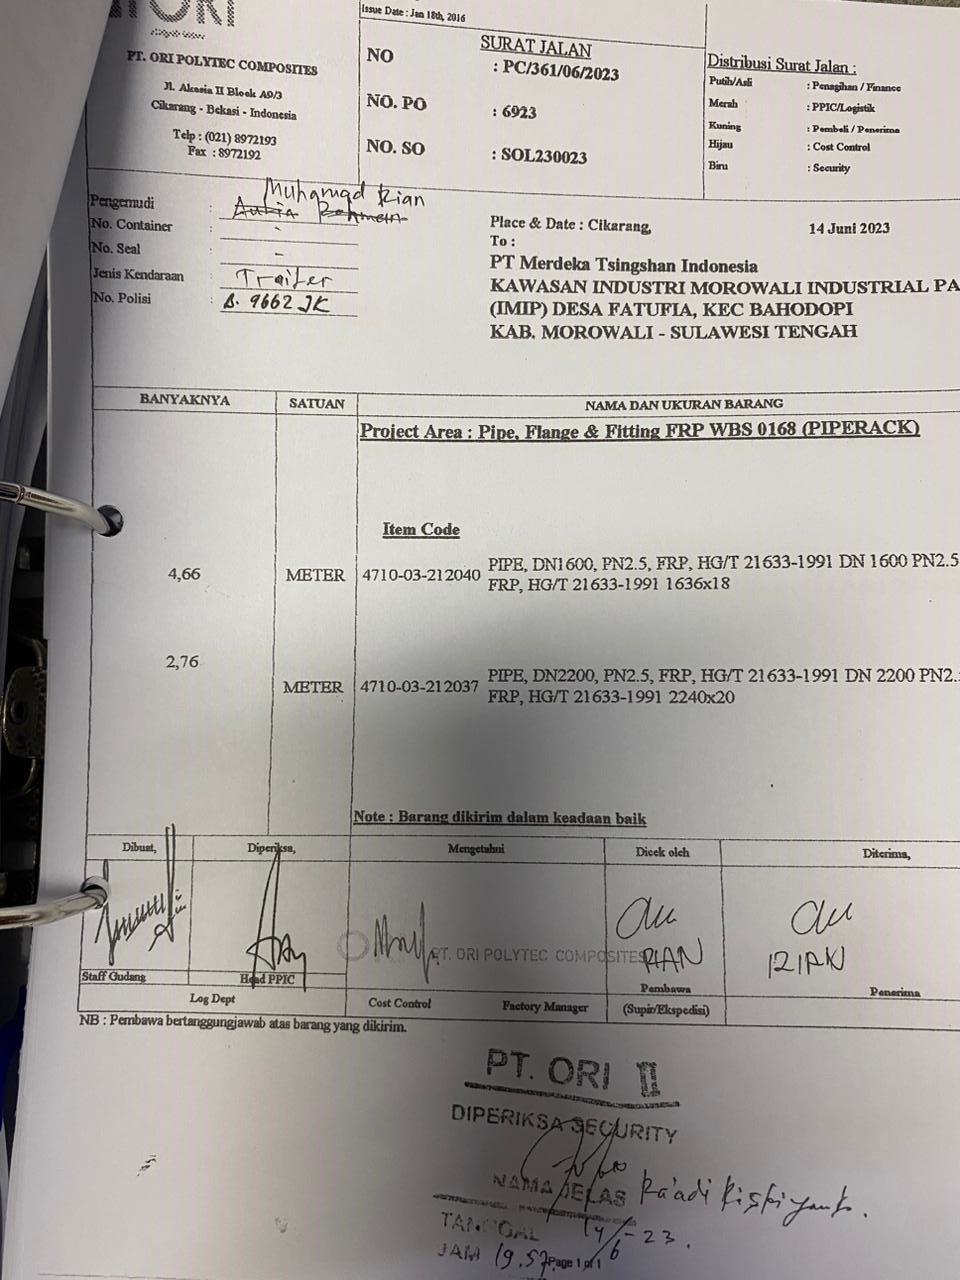 ORI
PT. ORI POLYTEC COMPOSITES
Jl. Akasia II Block A9/3
Cikarang - Bekasi - Indonesia
Telp : (021) 8972193
Fax : 8972192
Issue Date : Jan 18th, 2016
SURAT JALAN
NO : PC/361/06/2023
NO. PO : 6923
NO. SO : SOL230023
Distribusi Surat Jalan :
Putih/Asli : Penagihan / Finance
Merah : PPIC/Logistik
Kuning : Pembeli / Penerima
Hijau : Cost Control
Biru : Security
Muhamad Rian
Pengemudi :
No. Container : -
No. Seal : -
Jenis Kendaraan : Trailer
No. Polisi : B. 9662 JK
Place & Date : Cikarang, 14 Juni 2023
To :
PT Merdeka Tsingshan Indonesia
KAWASAN INDUSTRI MOROWALI INDUSTRIAL PA
(IMIP) DESA FATUFIA, KEC BAHODOPI
KAB. MOROWALI - SULAWESI TENGAH
BANYAKNYA SATUAN NAMA DAN UKURAN BARANG
Project Area : Pipe, Flange & Fitting FRP WBS 0168 (PIPERACK)
Item Code
4,66 METER 4710-03-212040 PIPE, DN1600, PN2.5, FRP, HG/T 21633-1991 DN 1600 PN2.5
FRP, HG/T 21633-1991 1636x18
2,76 METER 4710-03-212037 PIPE, DN2200, PN2.5, FRP, HG/T 21633-1991 DN 2200 PN2.
FRP, HG/T 21633-1991 2240x20
Note : Barang dikirim dalam keadaan baik
Dibuat, Diperiksa, Mengetahui Dicek oleh Diterima,
PT. ORI POLYTEC COMPOSITES
RIAN
Staff Gudang Head PPIC Pembawa Penerima
Log Dept Cost Control Factory Manager (Supir/Ekspedisi)
NB : Pembawa bertanggungjawab atas barang yang dikirim.
PT. ORI II
DIPERIKSA SECURITY
NAMA JELAS
TANGGAL 14/6-23.
JAM 19.57
Page 1 of 1